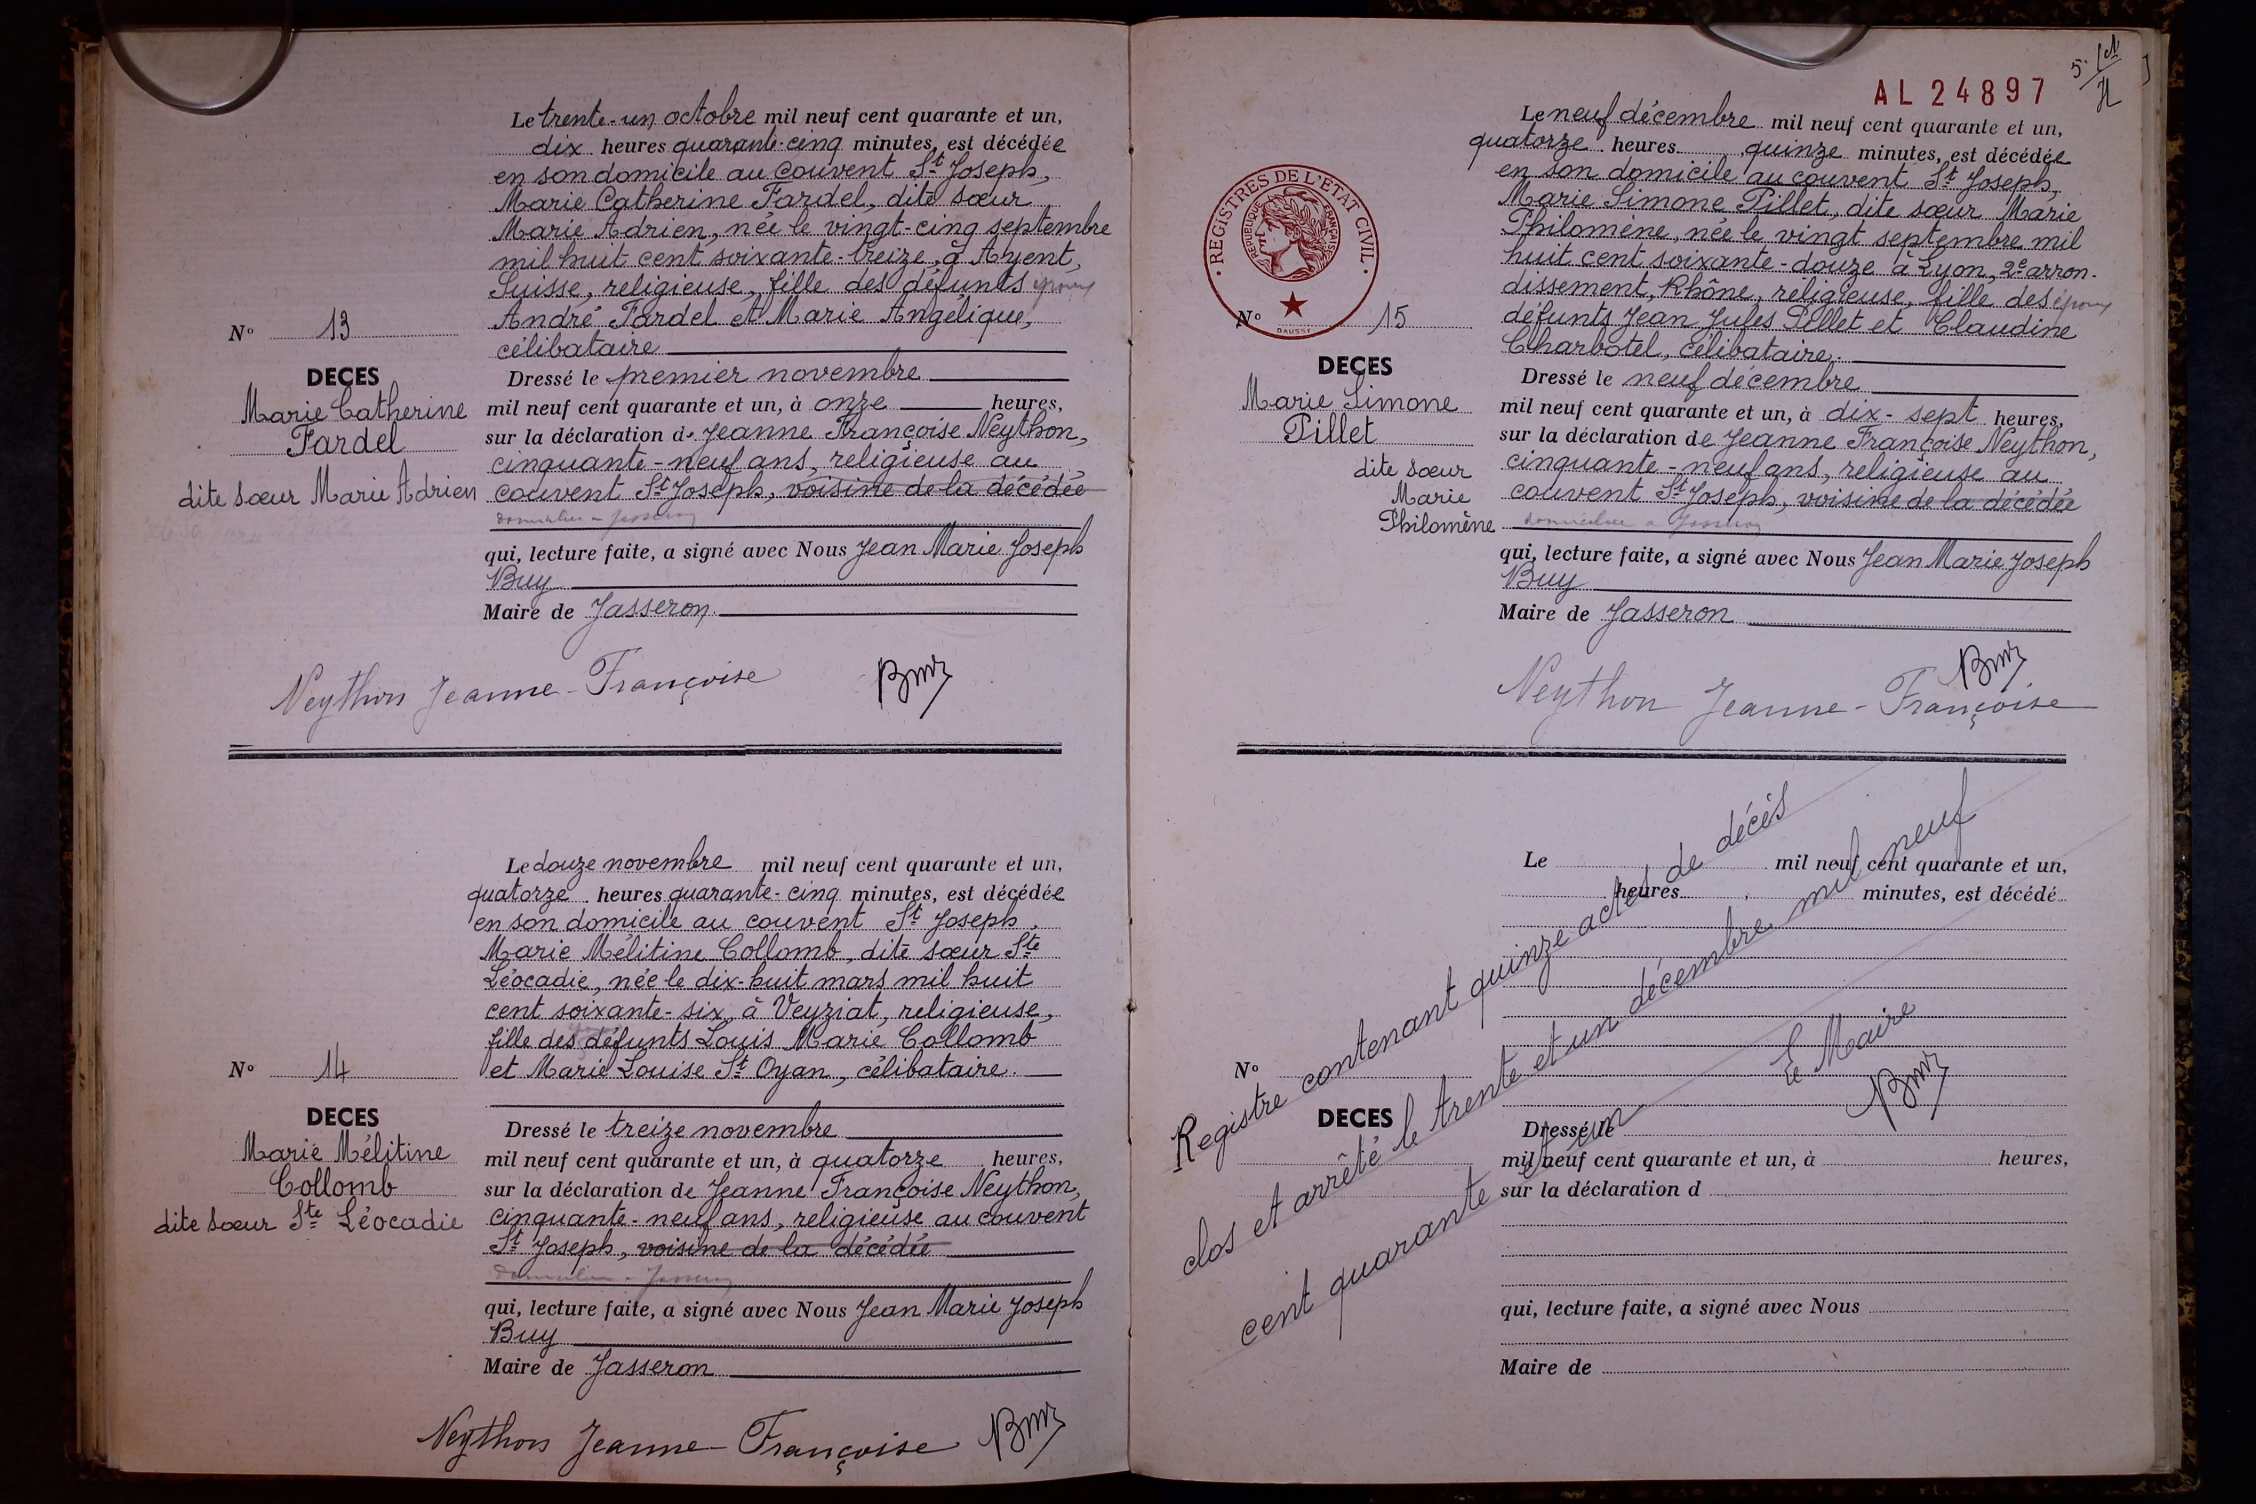 Le trente-un octobre mil neuf cent quarante et un,
dix heures quarante-cinq minutes, est décédée
en son domicile au couvent St Joseph,
Marie Catherine Fardel, dite sœur
Marie Adrien, née le vingt-cinq septembre
mil huit cent soixante-treize, à Ayent,
Suisse, religieuse, fille des défunts époux
André Fardel et Marie Angélique,
célibataire
N° 13
DECES
Marie Catherine
Fardel
dite sœur Marie Adrien
Dressé le premier novembre
mil neuf cent quarante et un, à onze heures,
sur la déclaration de Jeanne Françoise Neython,
cinquante-neuf ans, religieuse au
couvent St Joseph, voisine de la décédée
domiciliée à Jasseron
qui, lecture faite, a signé avec Nous Jean Marie Joseph
Buy
Maire de Jasseron
Neython Jeanne-Françoise Buy
Le douze novembre mil neuf cent quarante et un,
quatorze heures quarante-cinq minutes, est décédée
en son domicile au couvent St Joseph,
Marie Mélitine Collomb, dite sœur Ste
Léocadie, née le dix-huit mars mil huit
cent soixante-six, à Veyziat, religieuse,
fille des défunts Louis Marie Collomb
et Marie Louise St Oyan, célibataire.
N° 14
DECES
Marie Mélitine
Collomb
dite sœur Ste Léocadie
Dressé le treize novembre
mil neuf cent quarante et un, à quatorze heures,
sur la déclaration de Jeanne Françoise Neython,
cinquante-neuf ans, religieuse au couvent
St Joseph, voisine de la décédée
domiciliée à Jasseron
qui, lecture faite, a signé avec Nous Jean Marie Joseph
Buy
Maire de Jasseron
Neython Jeanne-Françoise Buy
AL 24897
REGISTRES DE L'ÉTAT CIVIL
REPUBLIQUE FRANÇAISE
DAUSSY
Le neuf décembre mil neuf cent quarante et un,
quatorze heures quinze minutes, est décédée
en son domicile au couvent St Joseph,
Marie Simone Pillet, dite sœur Marie
Philomène, née le vingt septembre mil
huit cent soixante-douze à Lyon, 2e arron-
dissement, Rhône, religieuse, fille des époux
défunts Jean Jules Pillet et Claudine
Charbotel, célibataire.
N° 15
DECES
Marie Simone
Pillet
dite sœur
Marie
Philomène
Dressé le neuf décembre
mil neuf cent quarante et un, à dix-sept heures,
sur la déclaration de Jeanne Françoise Neython,
cinquante-neuf ans, religieuse au
couvent St Joseph, voisine de la décédée
domiciliée à Jasseron
qui, lecture faite, a signé avec Nous Jean Marie Joseph
Buy
Maire de Jasseron
Buy
Neython Jeanne-Françoise
Le mil neuf cent quarante et un,
heures minutes, est décédé
N°
DECES
Dressé le
mil neuf cent quarante et un, à heures,
sur la déclaration d
qui, lecture faite, a signé avec Nous
Maire de
Registre contenant quinze actes de décès
clos et arrêté le trente et un décembre mil neuf
cent quarante et un
Le Maire
Buy